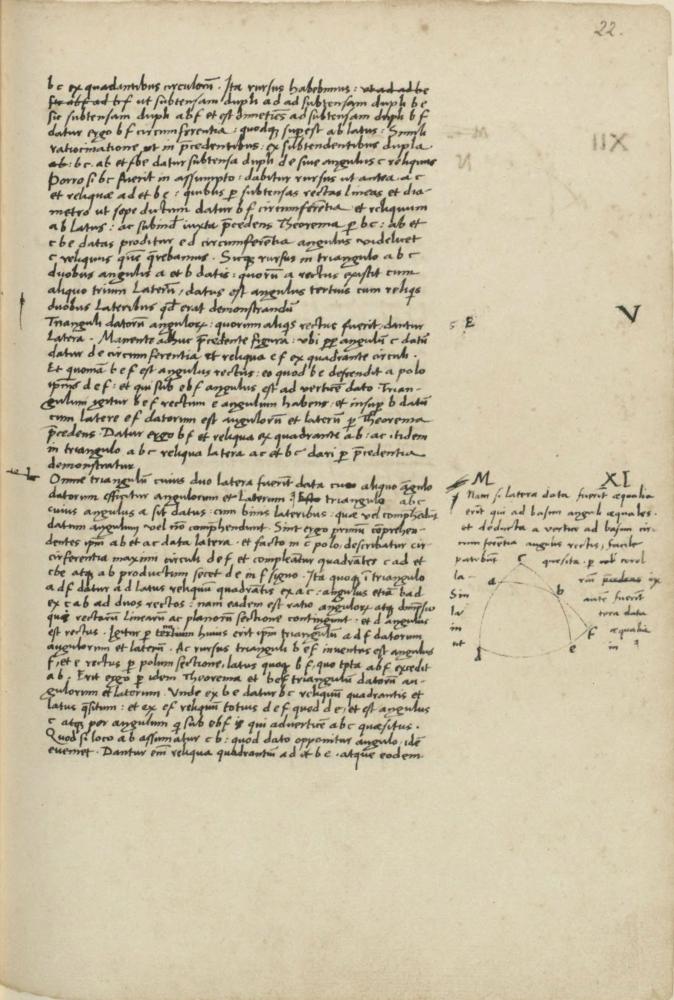 22.
b c ex quadantibus circulorũ. Ita rursus habebimus: ut ad ad be
ut subtensam dupli ad ad subtensam dupli b e
sic subtensam dupli abf et est dimetiẽs ad subtensam dupli b f
datur ergo b f circumferentia: quodq; superest ab latus: Simili
ratiocinatione, ut in p̃cedentibus: ex subtendentibus dupla
ab: bc. ab et fbe datur subtensa dupli de siue angulus c reliquus
Porro si bc fuerit in assumpto: dabitur rursus ut antea a c
et reliquæ ad et be: quibus p subtensas rectas lineas et dia-
metro ut sepe dictum datur b f circumferẽtia et reliquum
ab latus: ac subinde iuxta p̃cedens Theorema p bc: ab et
cbe datas proditur ed circumferẽtia angulus videlicet
c reliquus quẽ q̃rebamus. Sicq; rursus in triangulo a b c
duobus angulis a et b datis: quorũ a rectus existit cum
aliquo trium Laterũ, datus est angulus tertius cum reliq̃s
duobus Lateribus qđ erat demonstrandũ
Trianguli datorũ angulorꝝ: quorum aliq̃s rectus fuerit, dantur
Latera. Manente adhuc p̃cedente figura: ubi pp angulũ c datũ
datur de circumferentia et reliqua ef ex quadrante circuli.
Et quoniã b e f est angulus rectus: eo quod be descendit a polo
ipsius def: et qui sub ebf angulus est ad verticẽ dato Trian-
gulum igitur bef rectum e angulum habens: et insup b datũ
cum latere ef datorum est angulorũ et laterũ p Theorema
p̃cedens. Datur ergo bf et reliqua ex quadrante ab: ac itidem
in triangulo abc reliqua latera ac et bc dari p p̃cedentia
demonstratur
Omne triangulũ cuius duo latera fuerĩt data cum aliquo ãgulo
datorum efficitur angulorum et Laterum: Esto triangulo abc
cuius angulus a sit datus: cum binis lateribus: quæ vel comphendũt
datum angulum vel nõ comphendunt. Sint ergo primũ cõprehen-
dentes ipm̃ ab et ac data latera. et facto in c polo: describatur cir
cũferentia maximi circuli def et compleãtur quadrãtes cad et
cbe atq; ab productum secet de in f signo. Ita quoq; ĩ triangulo
adf datur ad latus reliquũ quadrãtis ex ac: angulus etiã bad
ex cab ad duos rectos: nam eadem est ratio angulorꝝ atq; dimẽsio
quæ rectarũ linearũ ac planorũ sectione contingunt. et d angulus
est rectus. Igitur p huius erit ipm̃ triangulũ adf datorum
angulorum et laterũ. Ac rursus trianguli bef inuentus est angulus
f, et e rectus p polum sectione, latus quoq; bf, quo tota abf excedit
ab. Erit ergo p idem Theorema et bef triangulũ datorũ an-
gulorum et laterum. Vnde ex be datur bc reliquũ quadrantis et
latus q̃situm: et ex ef reliquũ totius def quod de, et est angulus
c atq; per angulum q sub ebf is qui aduertice abc quæsitus.
Quod si loco ab assumatur cb: quod dato opponitur angulo, idẽ
eueniet. Dantur em̃ reliqua quadrantũ ad et be. atque eodem
E
V
M XI
Nam si latera data fuerĩt æqualia
erũt qui ad basim anguli æquales.
et deducta a vertice ad basim cir-
cum ferẽtia angulis rectis, facile
patebũt quæsita. p
a c b d e f
la-
Sin
la
in
ut
autẽ fuerĩt
tera data
æqualia
in